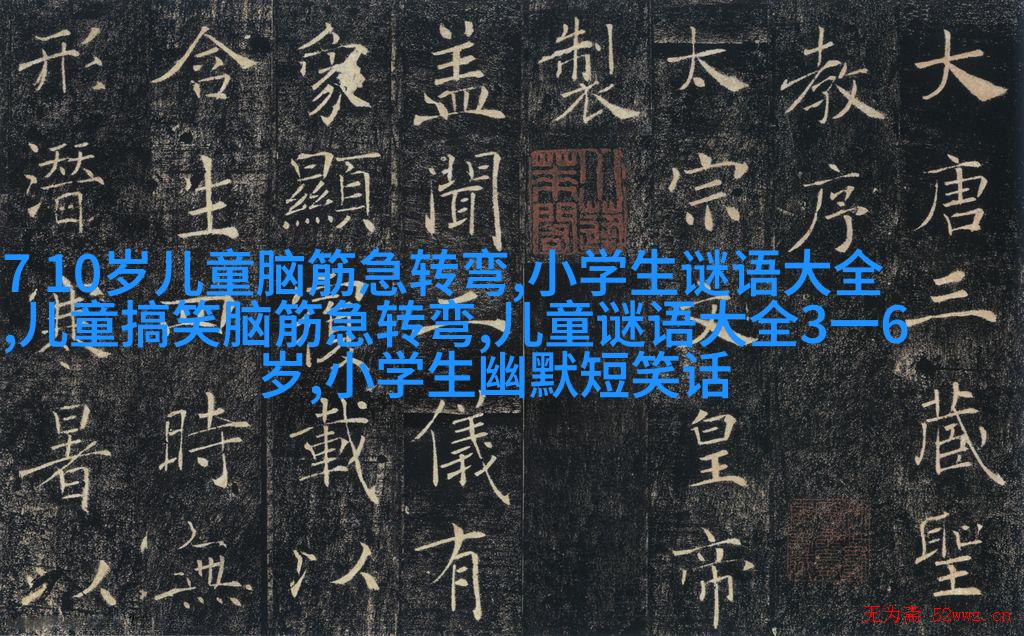 大唐三藏聖
教序
太宗文皇帝
製
盖聞二儀有
象顯覆載以
含生四時無
形潛寒暑以
7 10岁儿童脑筋急转弯,小学生谜语大全
,儿童搞笑脑筋急转弯,儿童谜语大全3一6
岁,小学生幽默短笑话
无为斋 52wwz.cn